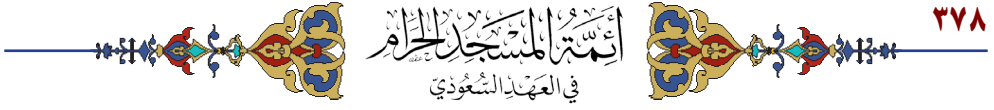 ٣٧٨
أَئِمَّةُ المَسْجِدِ الحَرَامِ
في العَهْدِ السُّعُودِيّ